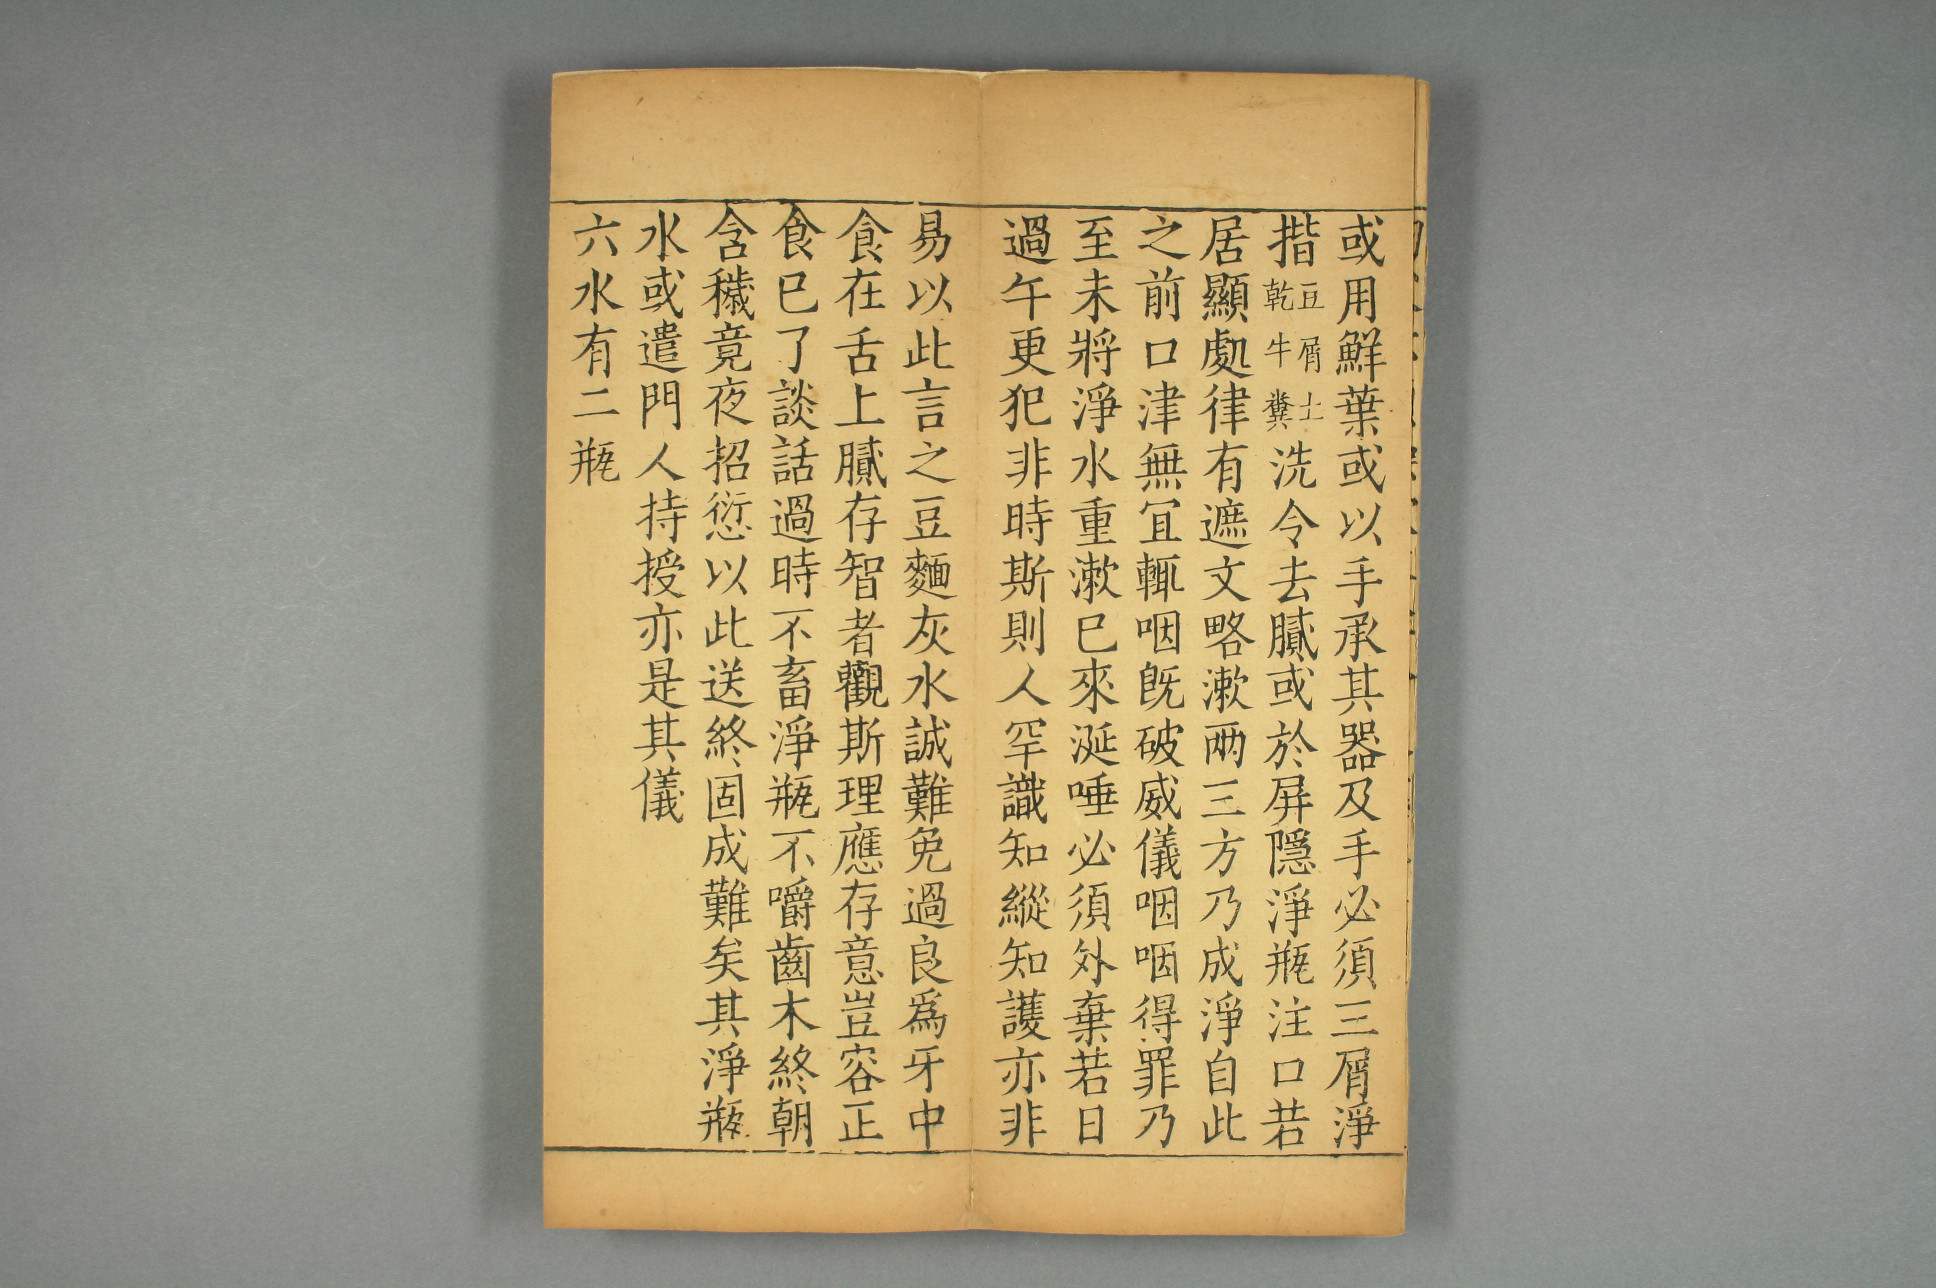 或用鮮葉或以手承其器及手必須三屑淨
揩豆屑土乾牛糞洗令去膩或於屏隱淨瓶注口若
居顯處律有遮文略漱兩三方乃成淨自此
之前口津無冝輙咽旣破威儀咽咽得罪乃
至未將淨水重漱已來涎唾必須外棄若日
過午更犯非時斯則人罕識知縱知護亦非
易以此言之豆麵灰水誠難免過良爲牙中
食在舌上膩存智者觀斯理應存意豈容正
食已了談話過時不畜淨瓶不嚼齒木終朝
含穢竟夜招愆以此送終固成難矣其淨瓶
水或遣門人持授亦是其儀
六水有二瓶